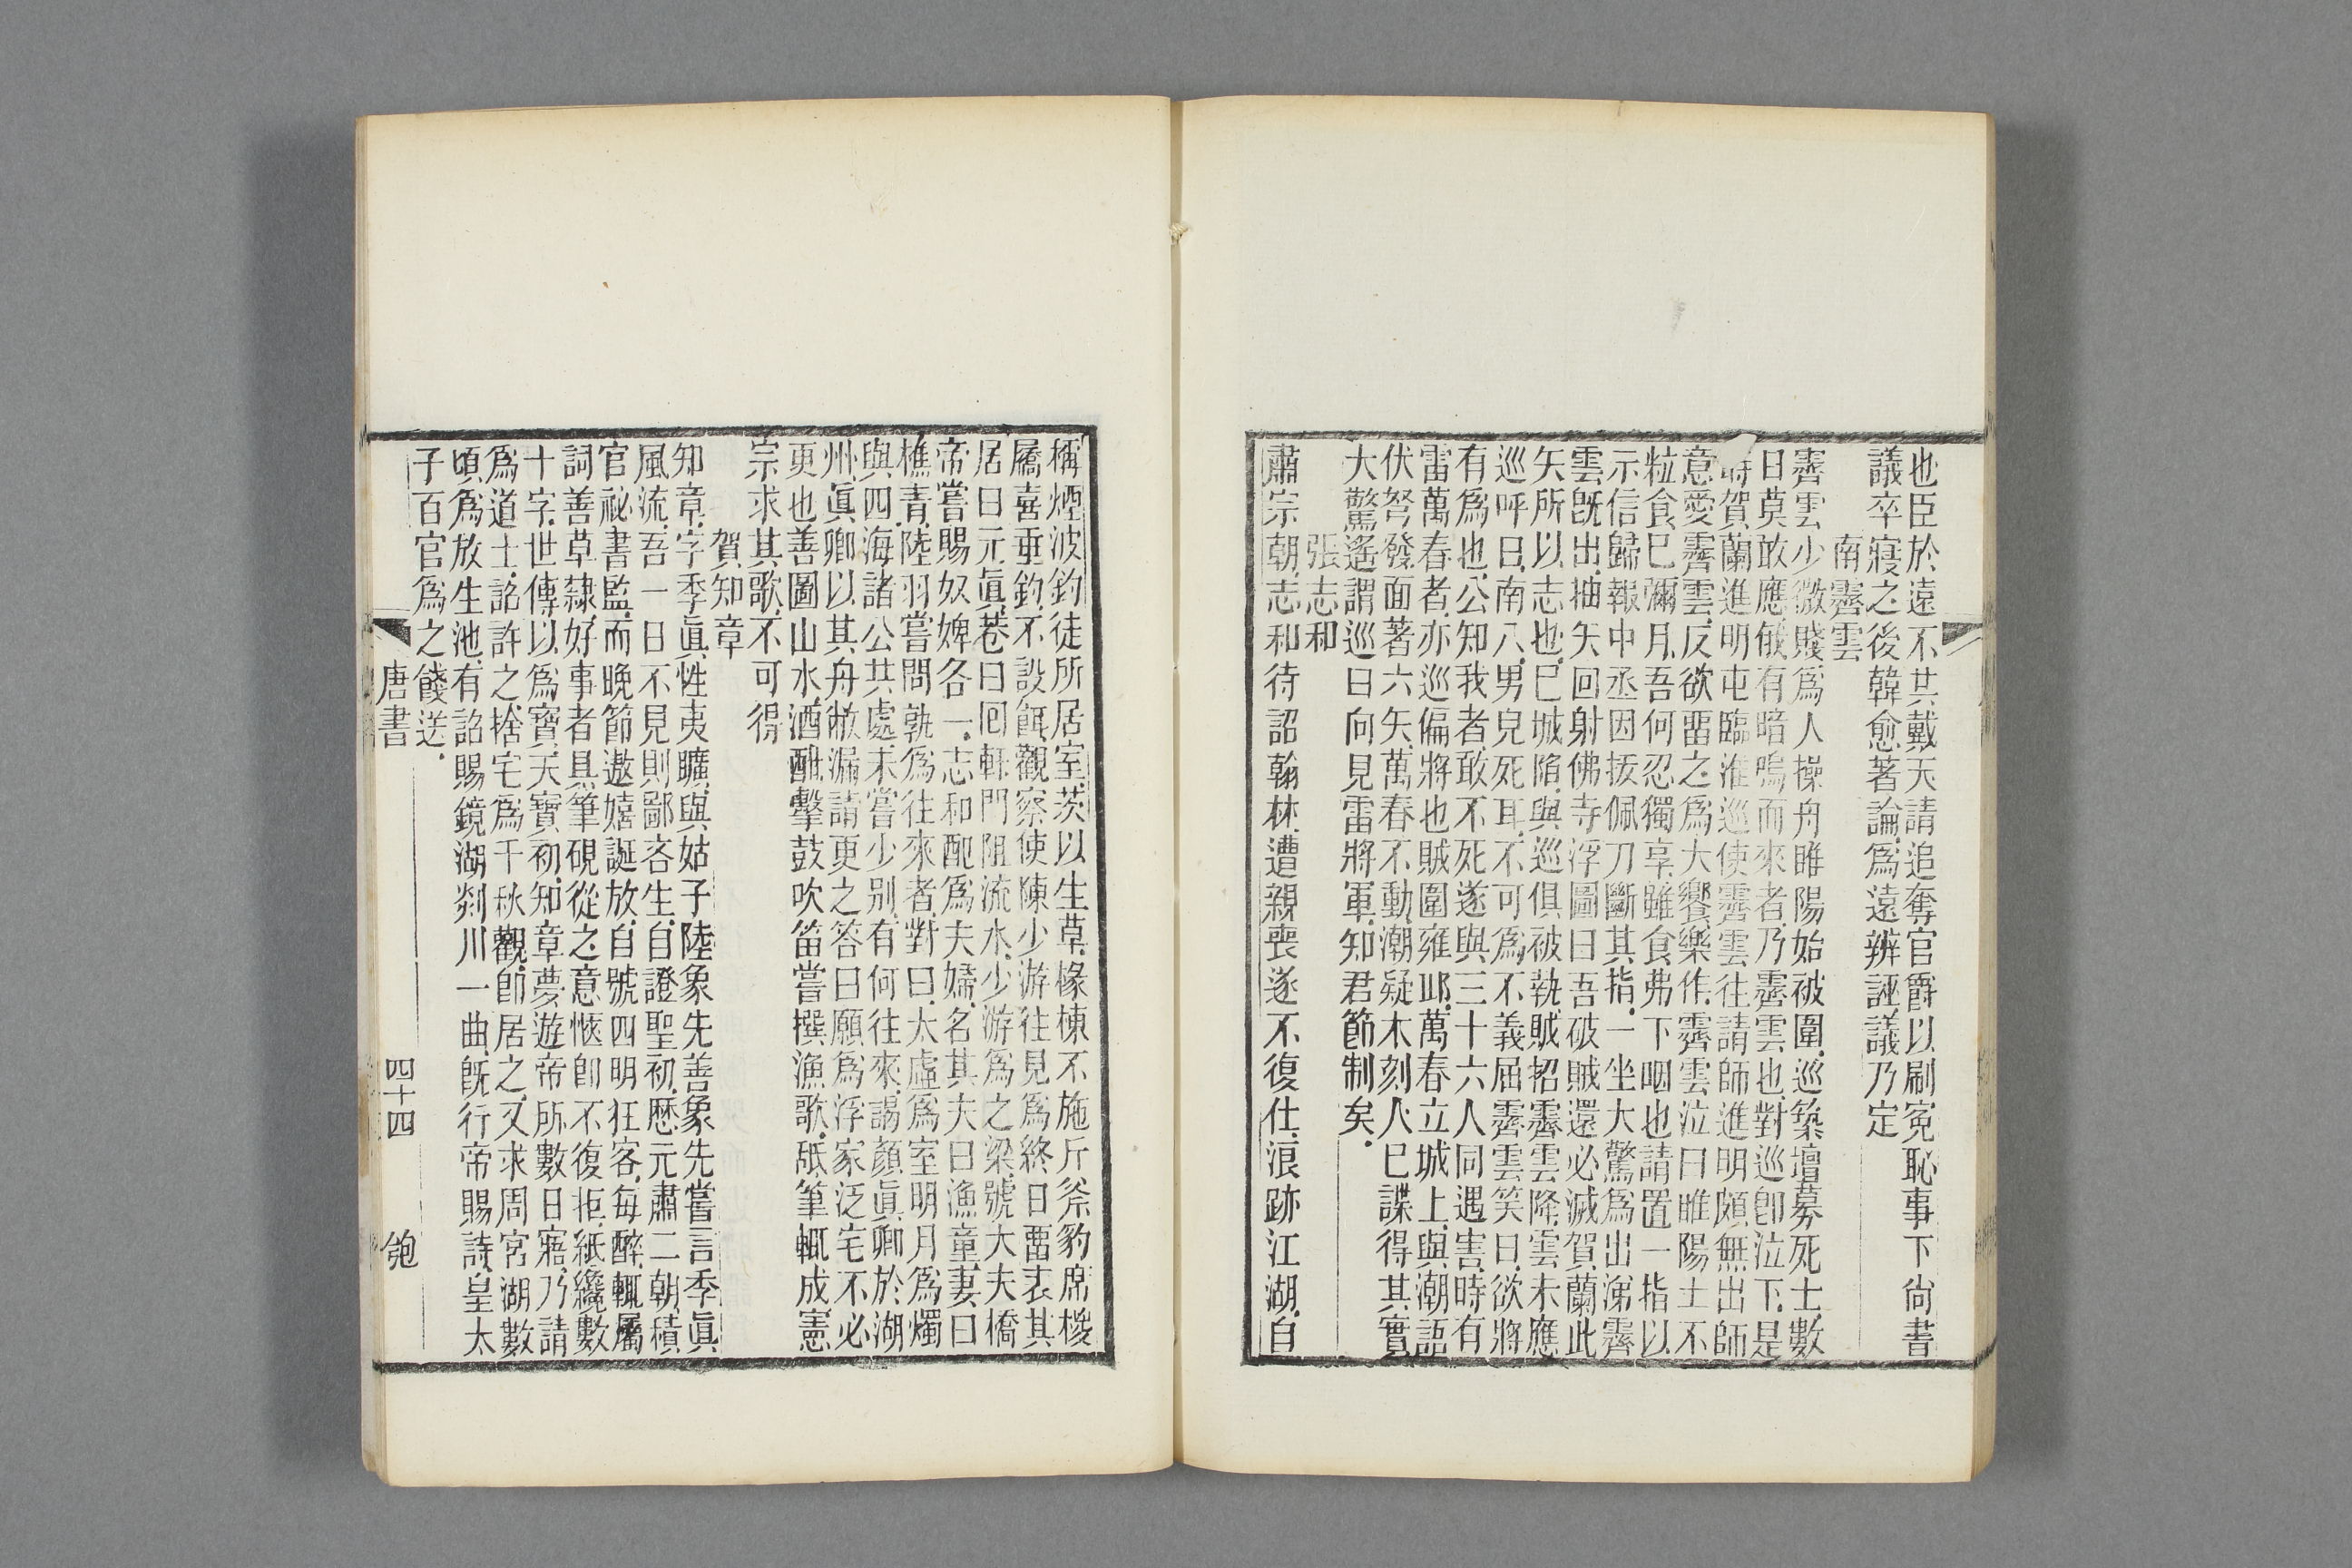 也臣於遠不共戴天請追奪官爵以刷冤恥事下尙書
議卒寢之後韓愈著論爲遠辨誣議乃定
南霽雲
霽雲少微賤爲人操舟睢陽始被圍巡築壇募死士數
日莫敢應俄有暗嗚而來者乃霽雲也對巡卽泣下是
時賀蘭進明屯臨淮巡使霽雲往請師進明頗無出師
意愛霽雲反欲畱之爲大饗樂作霽雲泣曰睢陽士不
粒食已彌月吾何忍獨享雖食弗下咽也請置一指以
示信歸報中丞因拔佩刀斷其指一坐大驚爲出涕霽
雲旣出抽矢回射佛寺浮圖曰吾破賊還必滅賀蘭此
矢所以志也已城陷與巡俱被執賊招霽雲降雲未應
巡呼曰南八男兒死耳不可爲不義屈霽雲笑曰欲將
有爲也公知我者敢不死遂與三十六人同遇害時有
雷萬春者亦巡偏將也賊圍雍邱萬春立城上與潮語
伏弩發面著六矢萬春不動潮疑木刻人已諜得其實
大驚遙謂巡曰向見雷將軍知君節制矣
張志和
肅宗朝志和待詔翰林遭親喪遂不復仕浪跡江湖自
稱煙波釣徒所居室茨以生草椽棟不施斤斧豹席椶
屩喜垂釣不設餌觀察使陳少游往見爲終日畱表其
居曰元眞巷曰回軒門阻流水少游爲之梁號大夫橋
帝嘗賜奴婢各一志和配爲夫婦名其夫曰漁童妻曰
樵青陸羽嘗問孰爲往來者對曰太虛爲室明月爲燭
與四海諸公共處未嘗少别有何往來謁顏眞卿於湖
州眞卿以其舟敝漏請更之答曰願爲浮家泛宅不必
更也善圖山水酒酣擊鼓吹笛嘗撰漁歌舐筆輒成憲
宗求其歌不可得
賀知章
知章字季眞性夷曠與姑子陸象先善象先嘗言季眞
風流吾一日不見則鄙吝生自證聖初歷元肅二朝積
官祕書監而晚節遨嬉誕放自號四明狂客每醉輒屬
詞善草隸好事者具筆硯從之意愜卽不復拒紙纔數
十字世傳以爲寶天寶初知章夢遊帝所數日寤乃請
爲道士詔許之捨宅爲千秋觀卽居之又求周宮湖數
頃爲放生池有詔賜鏡湖剡川一曲旣行帝賜詩皇太
子百官爲之餞送
唐書 四十四 匏